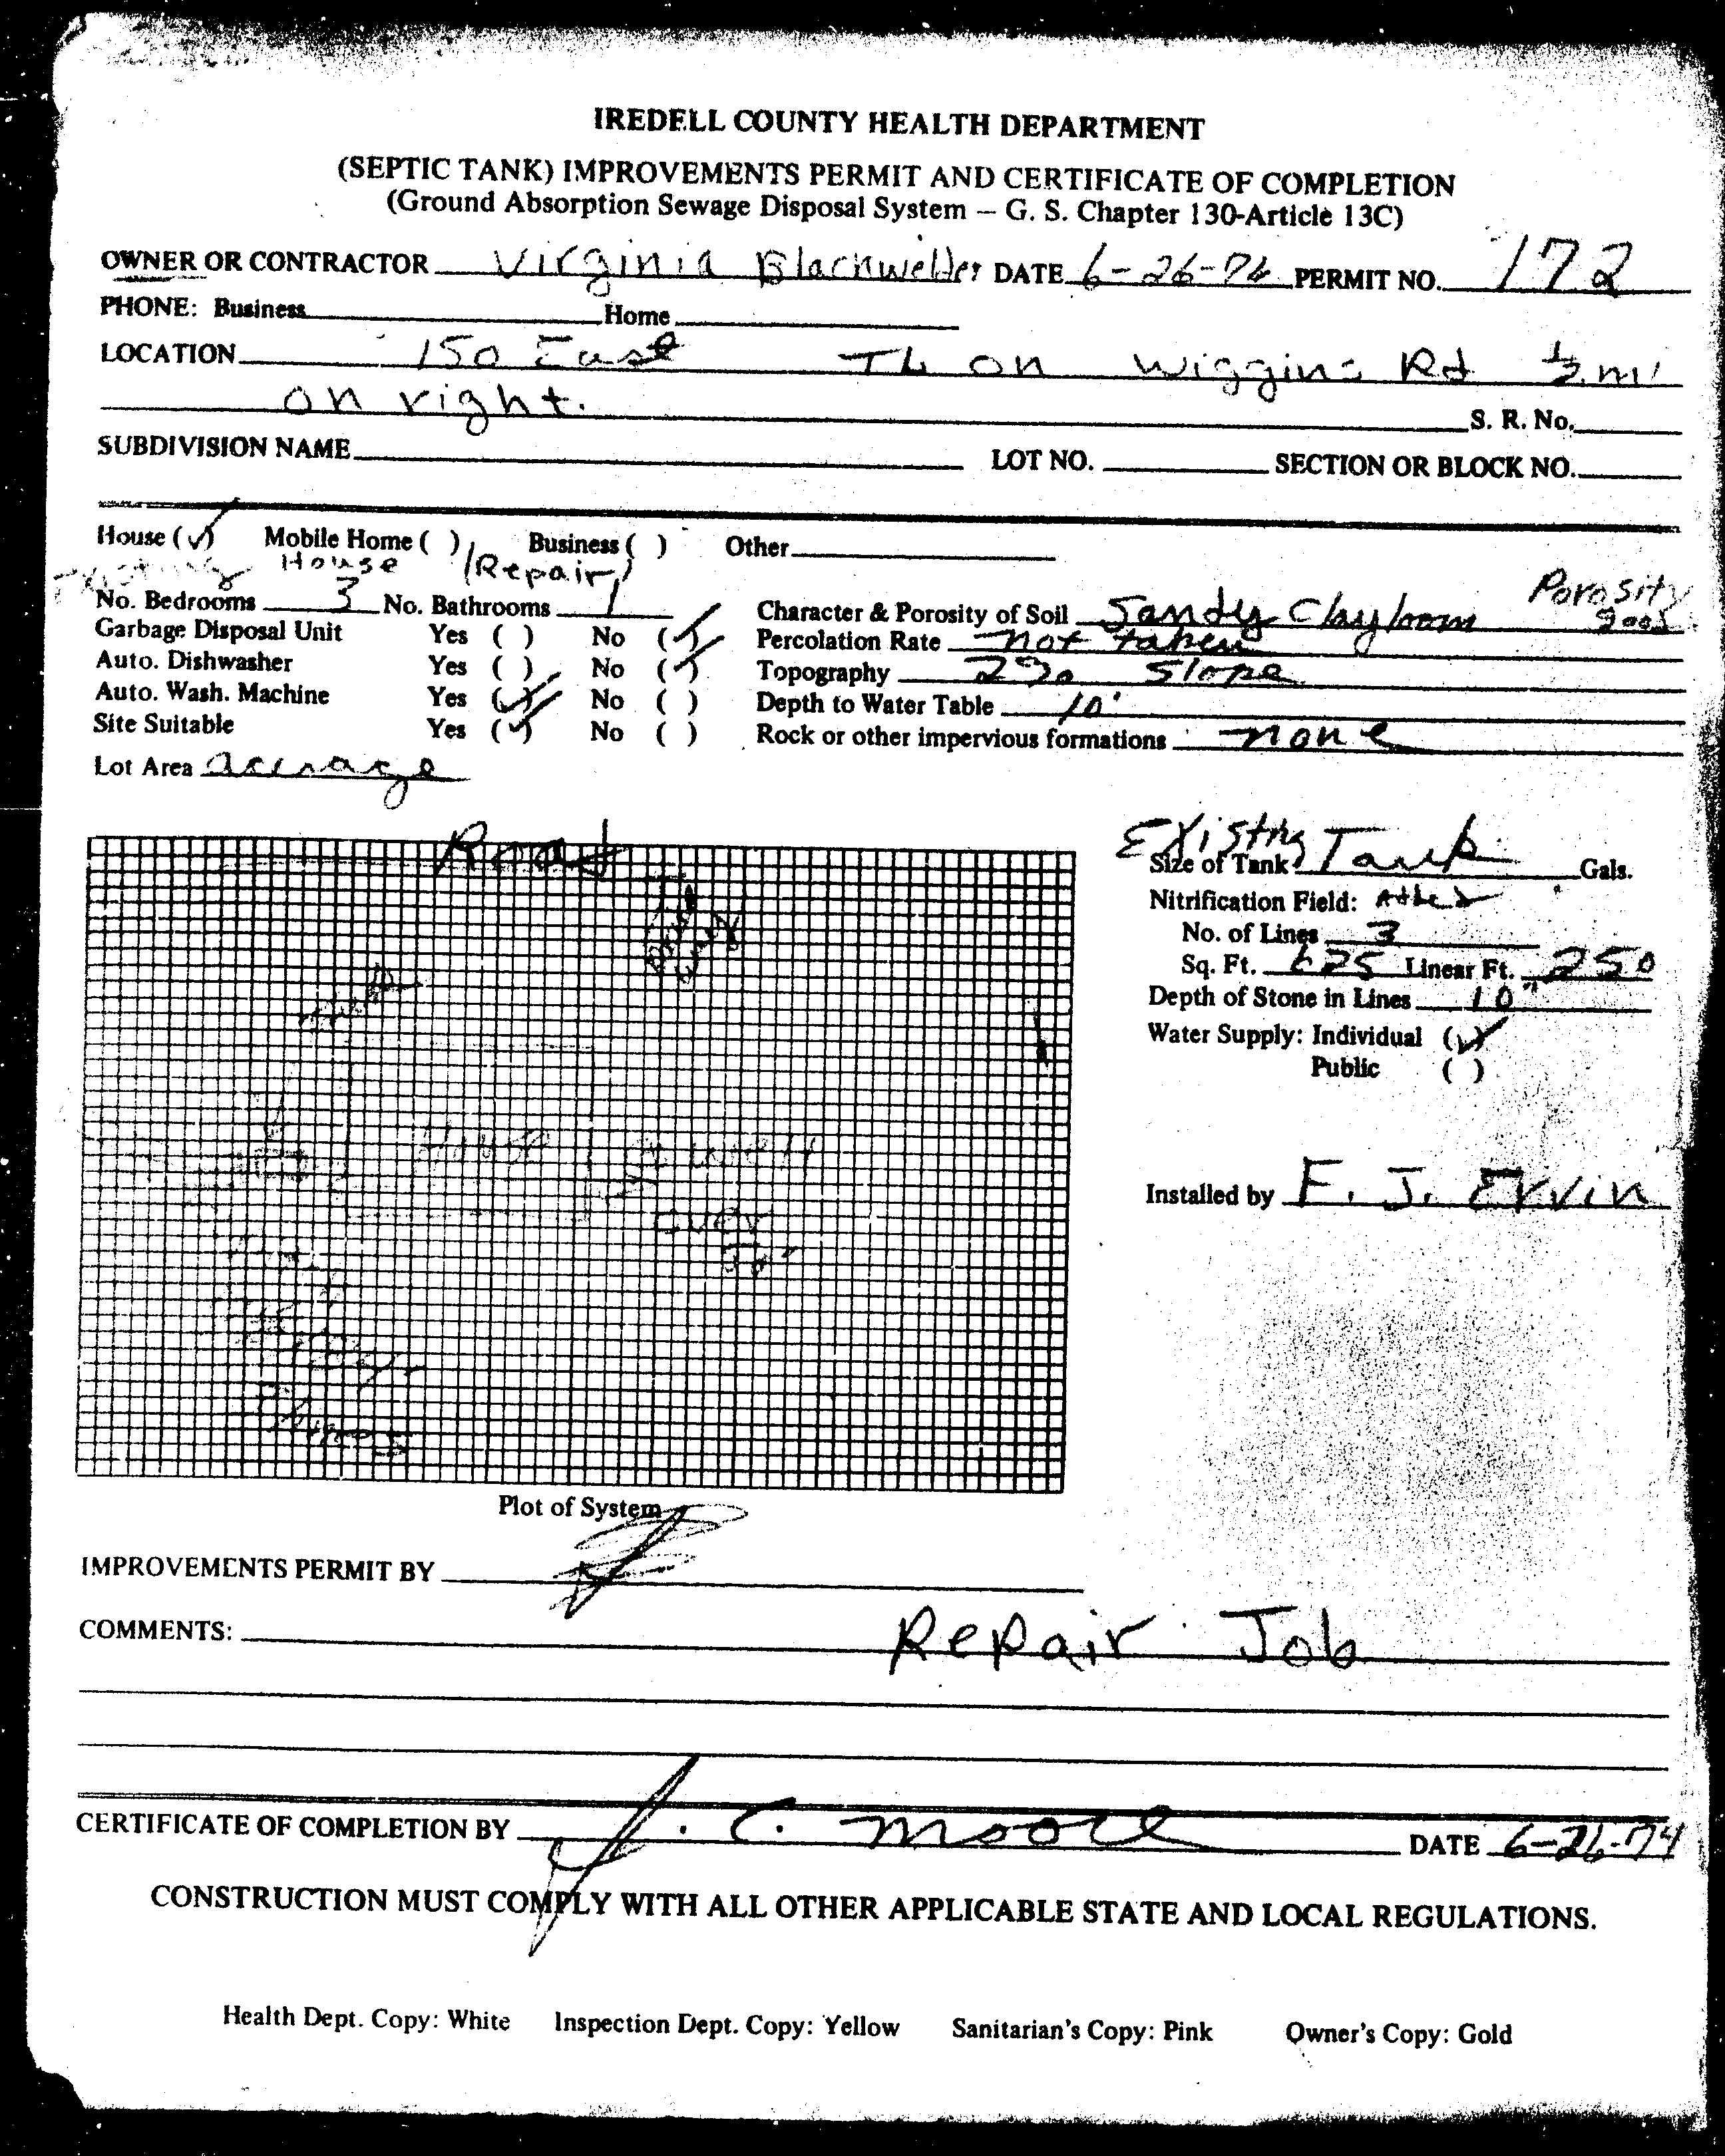 IREDELL COUNTY HEALTH DEPARTMENT
(SEPTIC TANK) IMPROVEMENTS PERMIT AND CERTIFICATE OF COMPLETION
(Ground Absorption Sewage Disposal System — G. S. Chapter 130-Article 13C)
OWNER OR CONTRACTOR Virginia Blackwelder DATE 6-26-74 PERMIT NO. 172
PHONE: Business Home
LOCATION 150 East TL on Wiggins Rd ½ mi
on right. S. R. No.
SUBDIVISION NAME LOT NO. SECTION OR BLOCK NO.
House (✓) Mobile Home ( ) Business ( ) Other
Existing House (Repair)
No. Bedrooms 3 No. Bathrooms 1
Garbage Disposal Unit Yes ( ) No (✓)
Auto. Dishwasher Yes ( ) No (✓)
Auto. Wash. Machine Yes (✓) No ( )
Site Suitable Yes (✓) No ( )
Lot Area acreage
Character & Porosity of Soil Sandy Clay loam Porosity good
Percolation Rate not taken
Topography 2% Slope
Depth to Water Table 10'
Rock or other impervious formations none
Road
House
well
over
Existing Tank
Size of Tank Gals.
Nitrification Field: Added
No. of Lines 3
Sq. Ft. 625 Linear Ft. 250
Depth of Stone in Lines 10"
Water Supply: Individual (✓)
Public ( )
Installed by F. J. Ervin
Plot of System
IMPROVEMENTS PERMIT BY
COMMENTS: Repair Job
CERTIFICATE OF COMPLETION BY J. C. Moore DATE 6-26-74
CONSTRUCTION MUST COMPLY WITH ALL OTHER APPLICABLE STATE AND LOCAL REGULATIONS.
Health Dept. Copy: White Inspection Dept. Copy: Yellow Sanitarian's Copy: Pink Owner's Copy: Gold